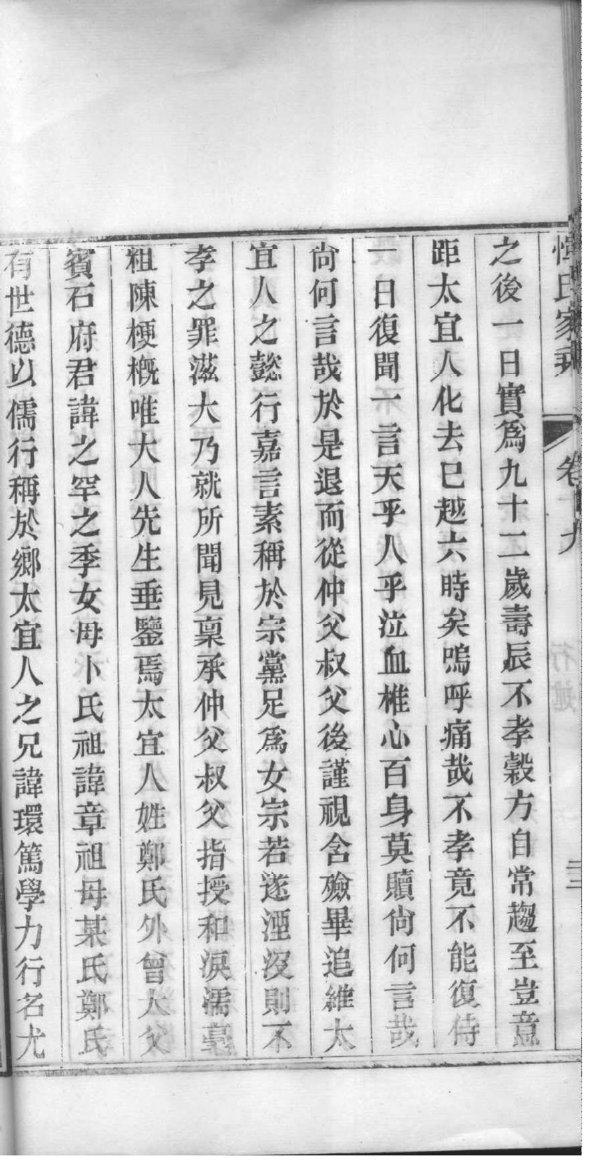 惲氏家乘 卷十九 三
之後一日實爲九十二歲壽辰不孝穀方自常趨至豈意
距太宜人化去已越六時矣嗚呼痛哉不孝竟不能復侍
一日復聞一言天乎人乎泣血椎心百身莫贖尙何言哉
尙何言哉於是退而從仲父叔父後謹視含殮畢追維太
宜人之懿行嘉言素稱於宗黨足爲女宗若遂湮沒則不
孝之罪滋大乃就所聞見稟承仲父叔父指授和淚濡毫
粗陳梗槪唯大人先生垂鑒焉太宜人姓鄭氏外曾大父
賓石府君諱之罕之季女母卜氏祖諱章祖母某氏鄭氏
有世德以儒行稱於鄉太宜人之兄諱環篤學力行名尤